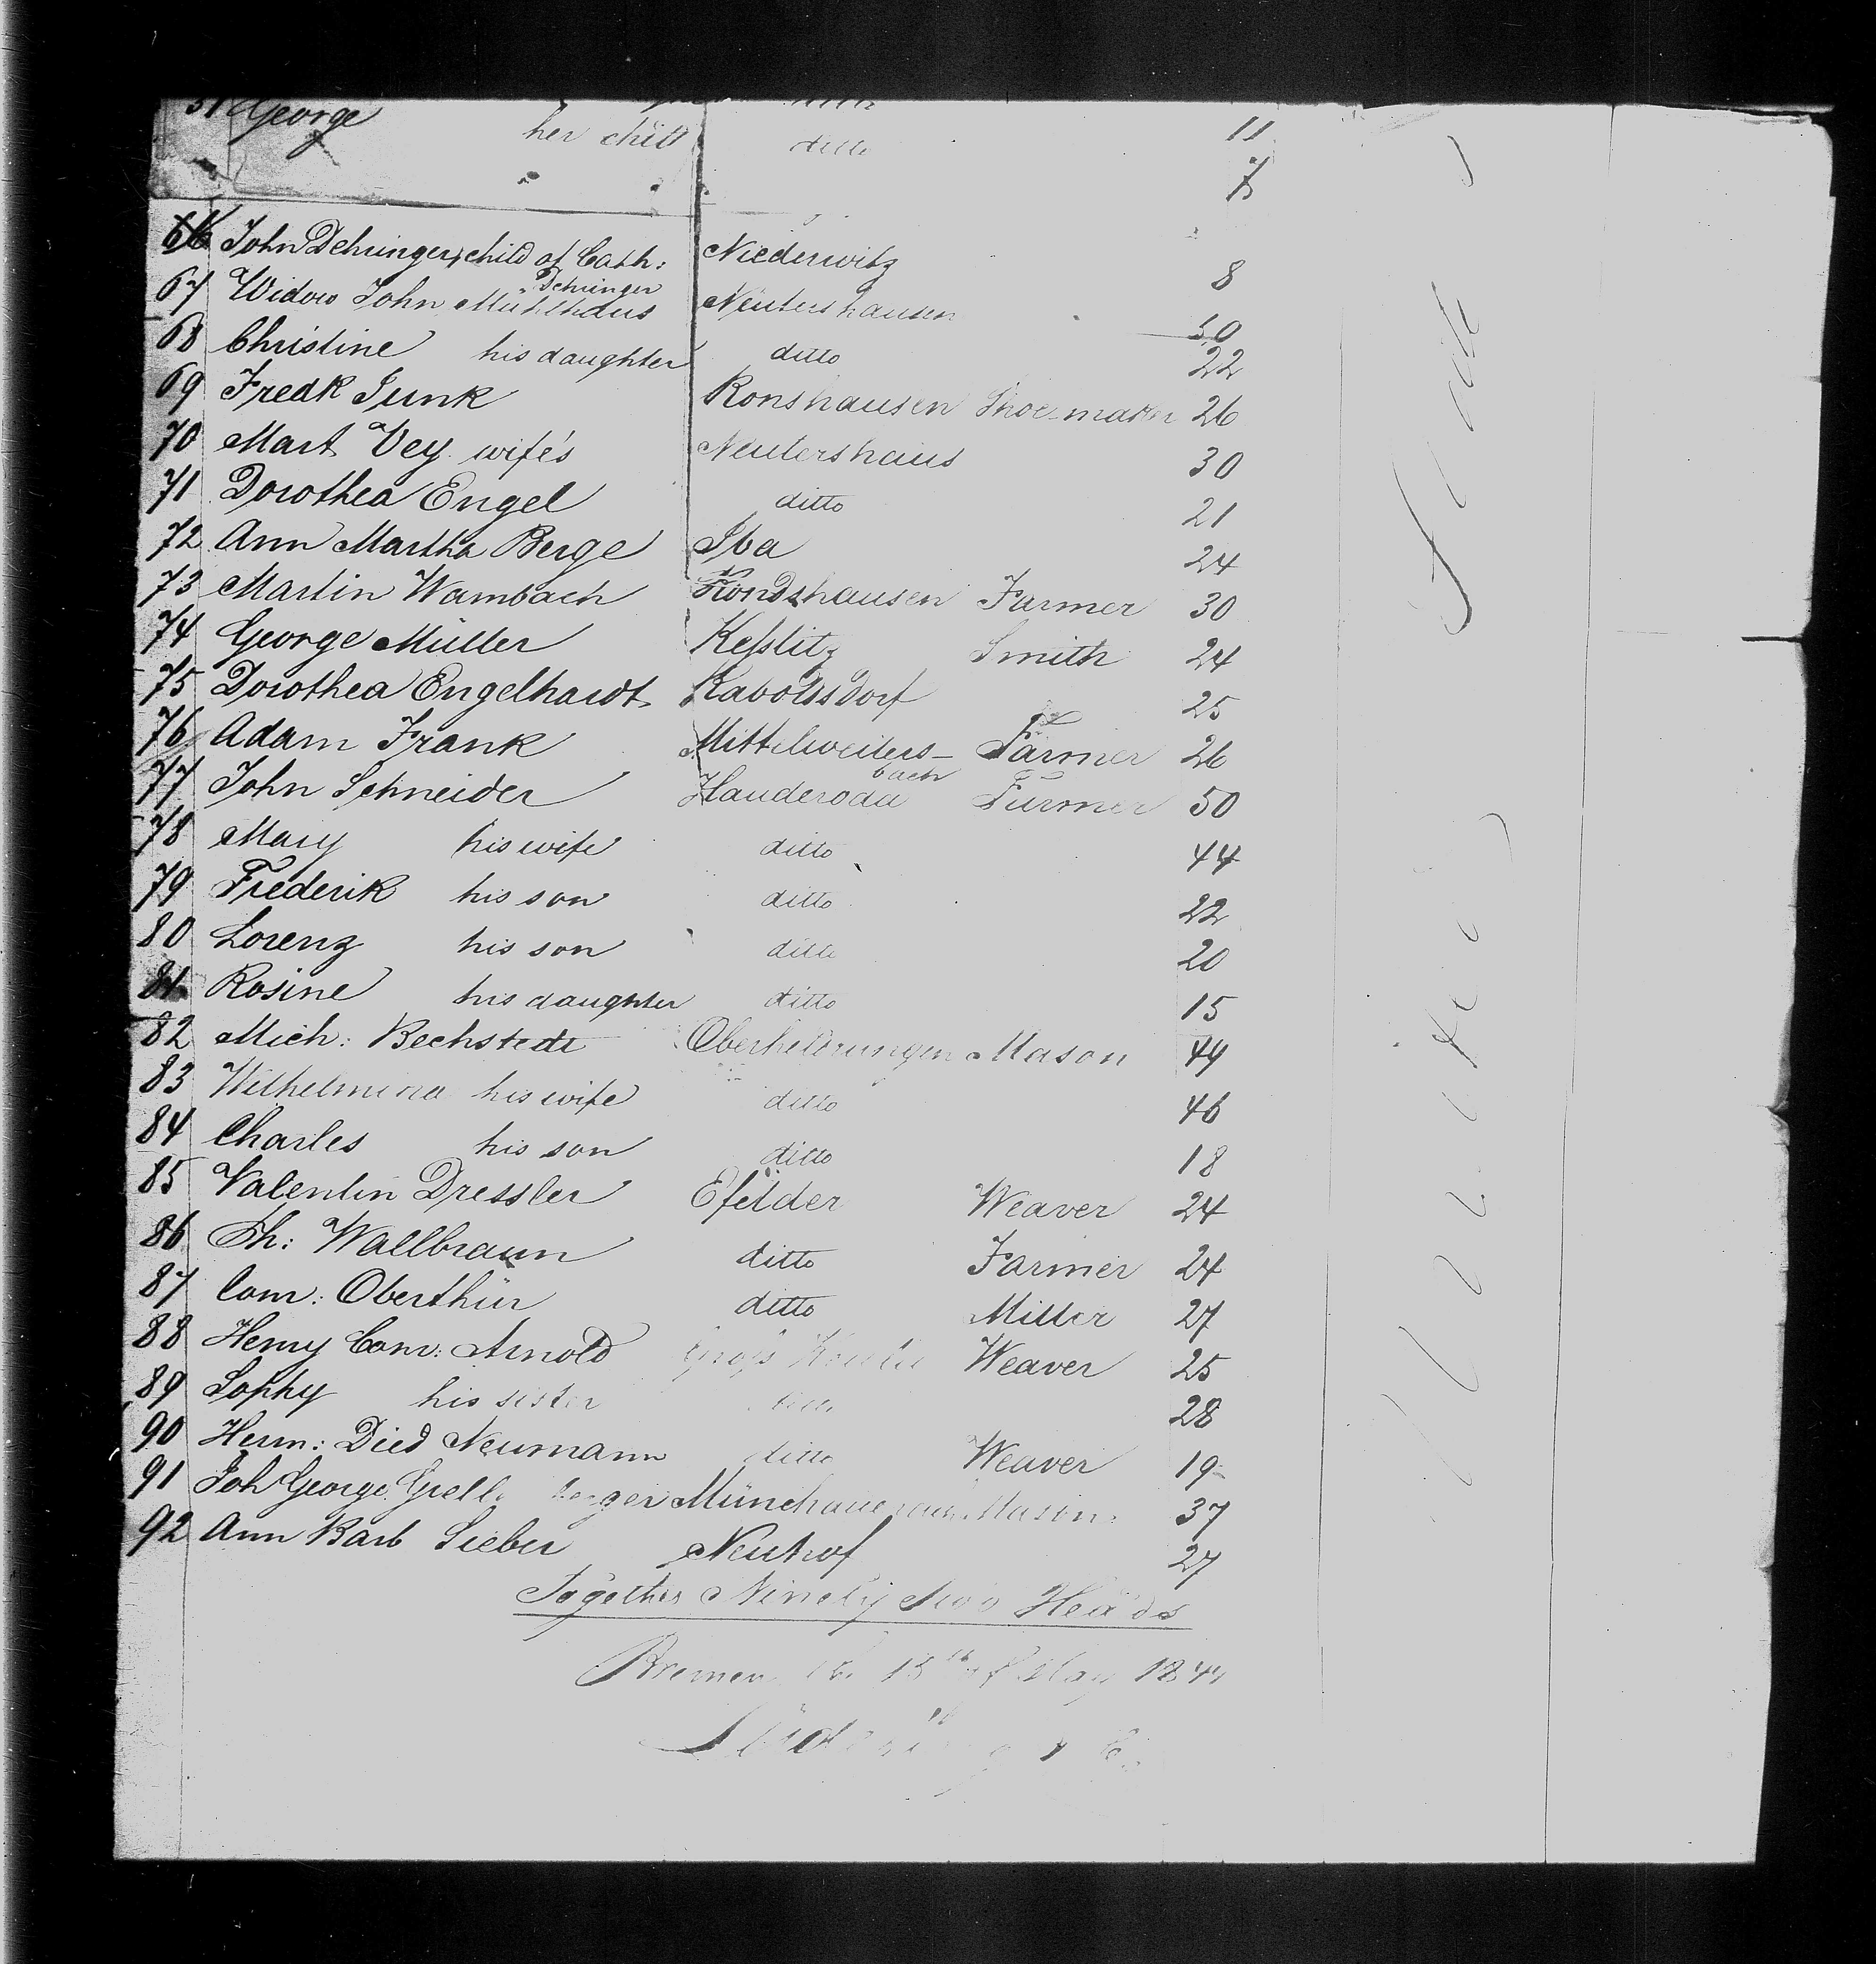 George her child ditto 11
7
66 John Dehringer, child of Cath: Niederwitz 8
Dehringer
67 Widow John Mühlhaus Neutershausen 50
68 Christine his daughter ditto 22
69 Fredk Junk Ronshausen Shoe-maker 26
70 Mart Vey wife's Neutershaus 30
71 Dorothea Engel ditto 21
72 Ann Martha Berge Iba 24
73 Martin Wambach Rondshausen Farmer 30
74 George Müller Keßlitz Smith 24
75 Dorothea Engelhardt Raboldsdorf 25
76 Adam Frank Mittelweiers- Farmer 26
bach
77 John Schneider Hauderoda Farmer 50
78 Mary his wife ditto 44
79 Frederik his son ditto 22
80 Lorenz his son ditto 20
81 Rosine his daughter ditto 15
82 Mich: Bechstedt Oberheldrungen Mason 44
83 Wilhelmina his wife ditto 46
84 Charles his son ditto 18
85 Valentin Dressler Efelder Weaver 24
86 Th: Wallbraun ditto Farmer 24
87 Conr: Oberthür ditto Miller 27
88 Henry Conr: Arnold Groß Weaver 25
89 Sophy his sister ditto 28
90 Herm: Died Neumann ditto Weaver 19
91 Joh George Mason 37
92 Ann Barb Sieber Neuhof 27
Together Ninety two Heads
Bremen the 13th of May 184